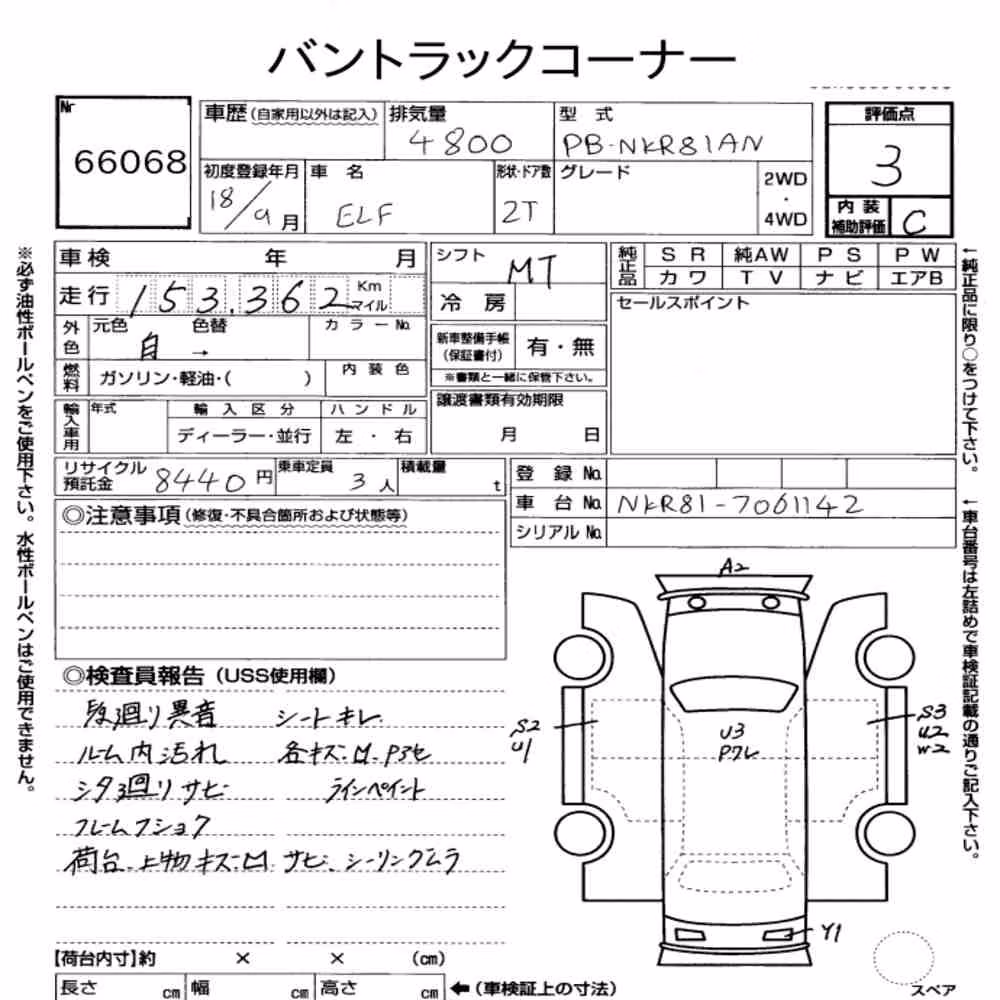 バントラックコーナー
Nr
66068
車歴(自家用以外は記入)
排気量
4800
型 式
PB-NKR81AN
評価点
3
初度登録年月
18/9月
車 名
ELF
形状・ドア数
2T
グレード
2WD
・
4WD
内 装
補助評価
C
車 検 年 月
シフト
MT
純正品
S R 純AW P S P W
カ ワ T V ナ ビ エアB
走行 153.362 Km
マイル
冷 房
セールスポイント
外色
元色 色替
→
カ ラ ー No.
新車整備手帳
(保証書付)
有・無
※書類と一緒に保管下さい。
燃料
ガソリン・軽油・( )
内 装 色
譲渡書類有効期限
月 日
輸入車用
年式
輸 入 区 分
ハ ン ド ル
ディーラー・並行
左 ・ 右
リサイクル
預託金
8440円
乗車定員
3人
積載量
t
登 録 No.
車 台 No.
NKR81-7061142
シリアル No.
◎注意事項(修復・不具合箇所および状態等)
◎検査員報告(USS使用欄)
廻り異音 シートキレ
ルーム内汚れ 各キズ.凹.
シタ廻り サビ ラインペイント
フレームフショク
荷台.上物キズ.凹 サビ シーリングムラ
A2
S2
U1
U3
S3
U2
W2
Y1
【荷台内寸】約 × × (cm)
長さ cm 幅 cm 高さ cm
←(車検証上の寸法)
スペア
※必ず油性ボールペンをご使用下さい。水性ボールペンはご使用できません。
←純正品に限り○をつけて下さい。
←車台番号は左詰めで車検証記載の通りご記入下さい。